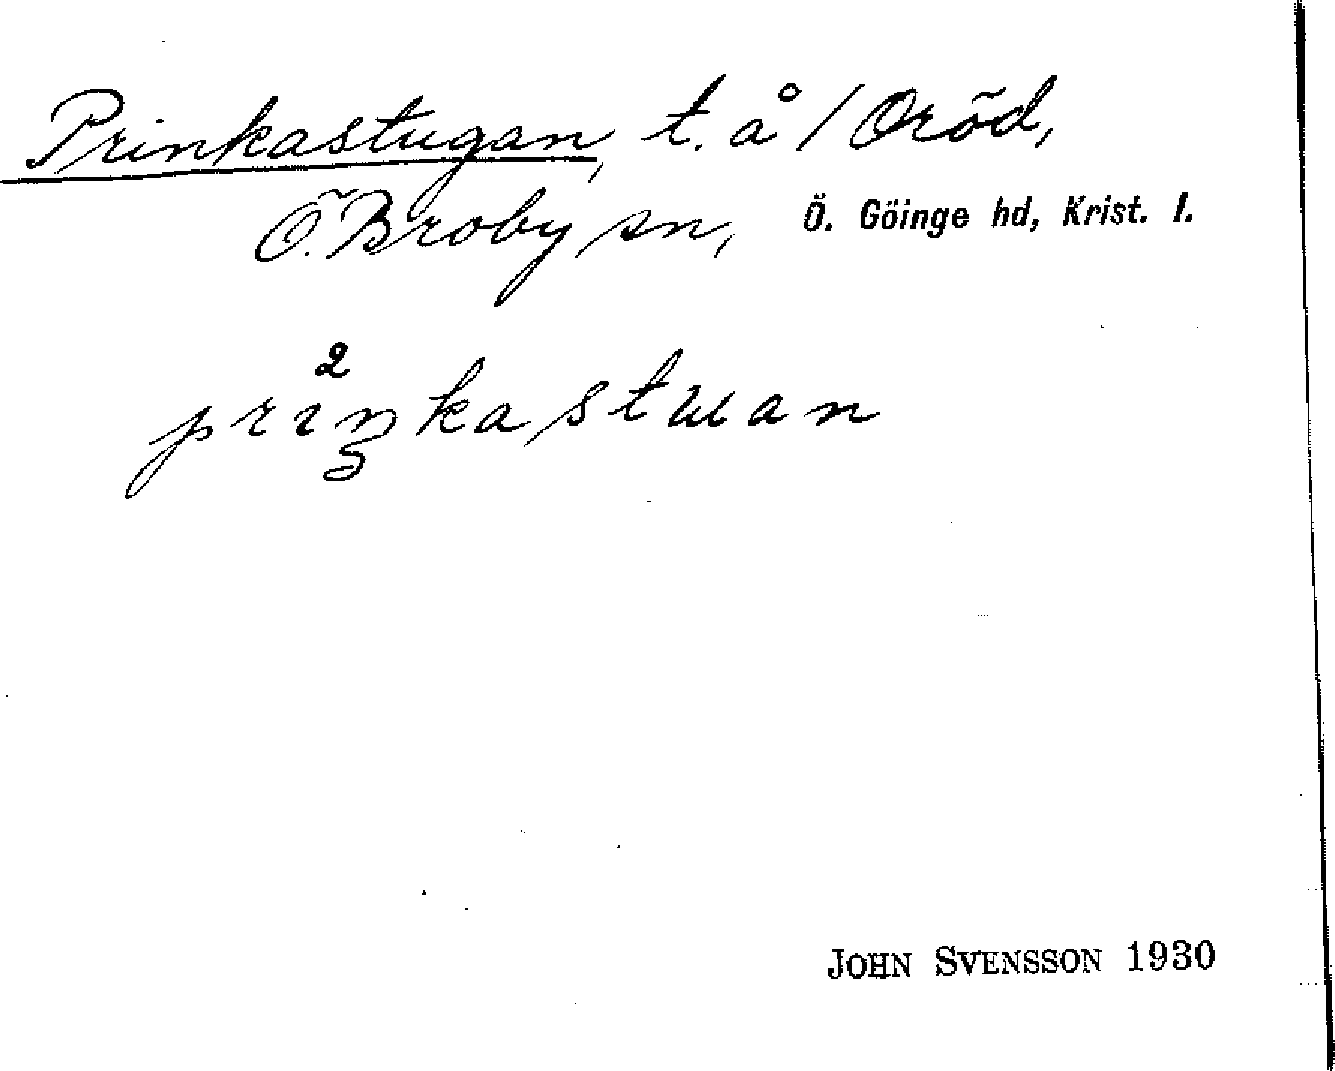 Prinkastugan, t. å / Oröd,
Ö. Broby sn, Ö. Göinge hd, Krist. l.
2
priŋkastuan
JOHN SVENSSON 1930